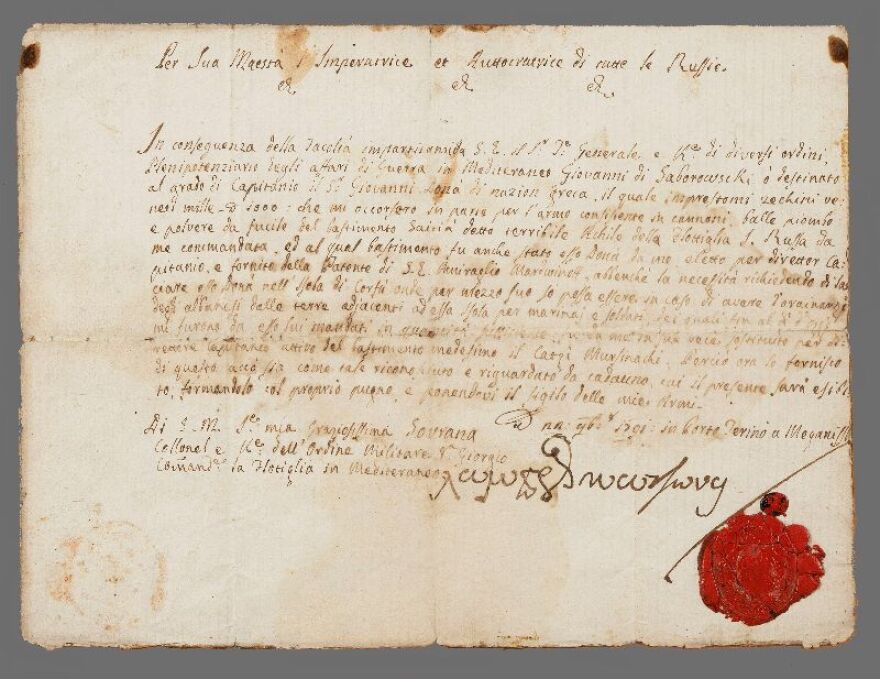 Per Sua Maestà l'Imperatrice et Auttocratrice di tutte le Russie
&. &. &.
In conseguenza della facoltà impartitami da S. E. il Sr. Tte. Generale e Kr. di diversi ordini,
Plenipotenziario degli affari di Guerra in Mediteraneo Giovanni di Saborowschi, o destinato
al grado di Capitanio il Sr. Giovanni Dona di nazion greca, il quale imprestomi zechini ve-
neti mille D 1000: che mi occorsero in parte per l'armo consistente in cannoni, balle, piombo
e polvere da fucile del bastimento Saicia detto terribile Achile della Flottiglia I. Russa da
me commandata, ed al qual bastimento fu anche stato esso Dona da me eletto per director Ca-
pitanio, e fornito della Patente di S. E. Amiraglio Marcwinof, abbenchè la necessità richiedendo di las-
ciare esso Dona nell'Isola di Corfù onde per mezzo suo io possa essere in caso di avere d'ora inanzi
degl'albanesi dalle terre adjacenti ad essa Isola per marinaj e soldati, dei quali fin al dì d'oggi
mi furono da esso lui mandati in sua vece sostituto per di-
rettore Capitanio ativo del bastimento medesimo il Catzi Mursinachi. Perciò ora lo fornisco
di questo acciò sia come tale riconosciuto e riguardato da cadauno, cui il presente sarà esibi-
to, formandolo col proprio pugno, e ponendovi il sigillo delle mie Armi.
Di S. M. I. mia Graziosissima Sovrana
Collonel e Kr. dell'Ordine Militare S. Giorgio
Comandte. la Flotiglia in Mediteraneo
D na: 9br. 1791: in Porto Terino a Meganissi
λαμπρο